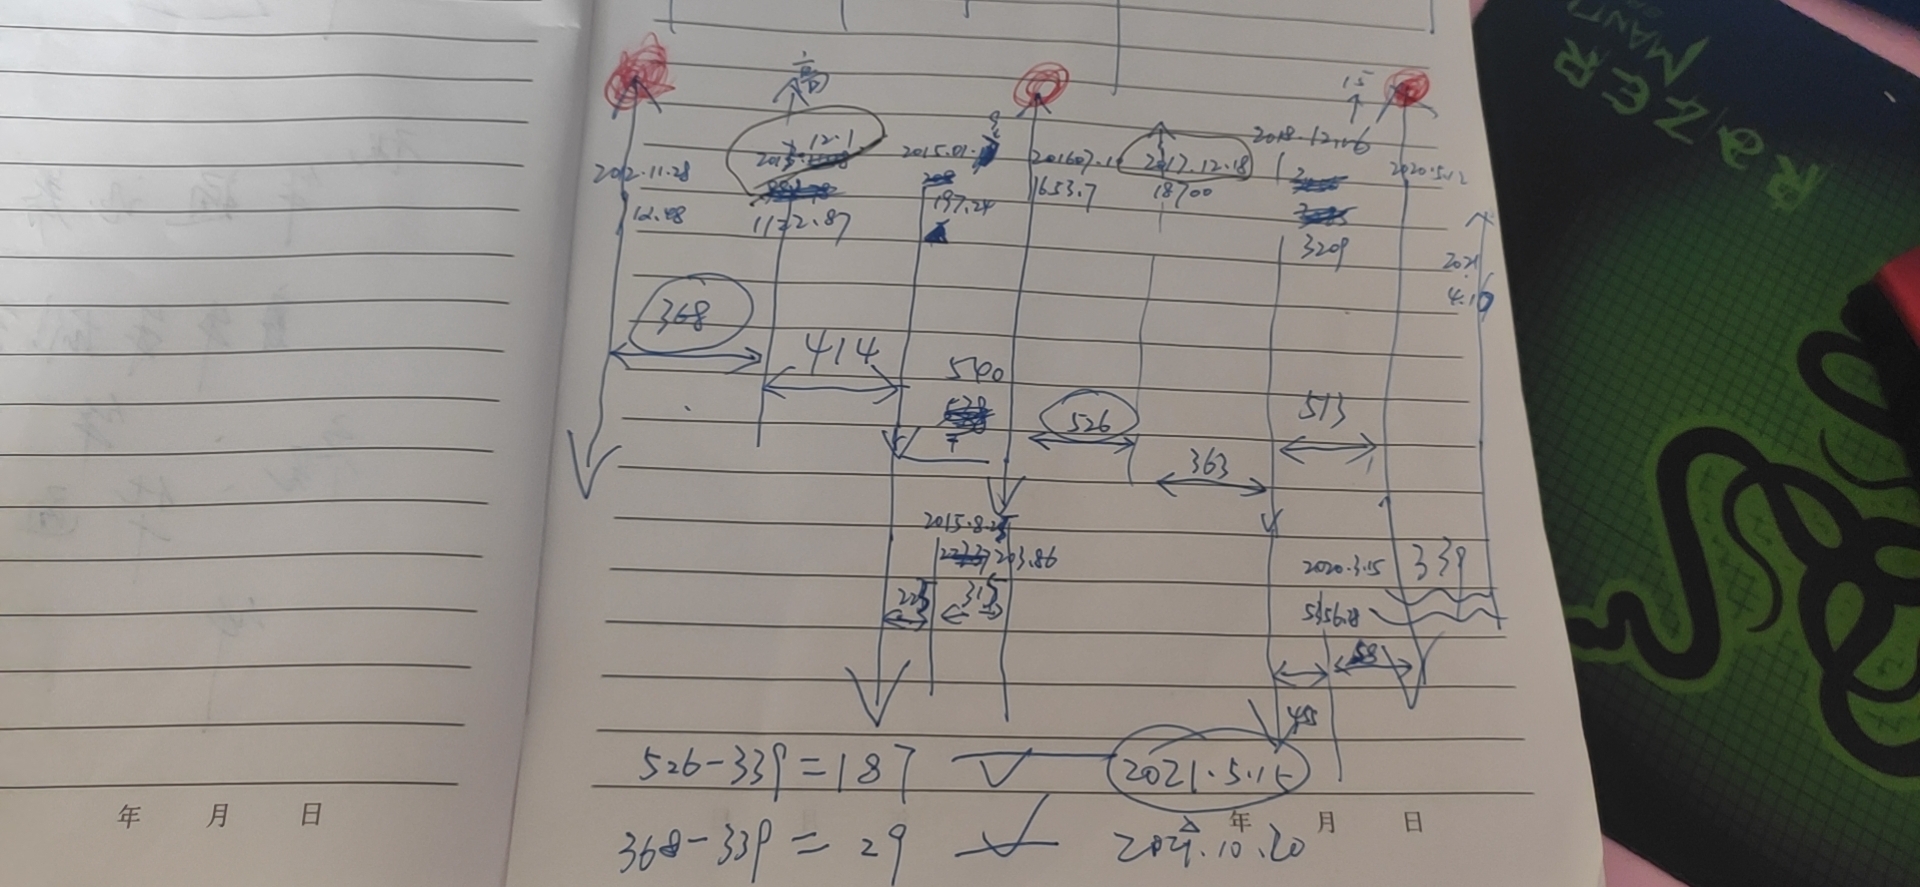 高
15
12.1
2018.12.16
2012.11.28
2015.01.
201607.1
2017.12.18
2020.5.12
12.48
1122.87
197.24
1653.7
18700
3209
2021
4.16
368
414
540
526
513
363
2015.8.25
203.86
2020.3.15
339
225
315
5356.8
58
455
526-339=187
2021.5.15
368-339=29
2021.10.20
年 月 日
年 月 日
RAZER
MANT